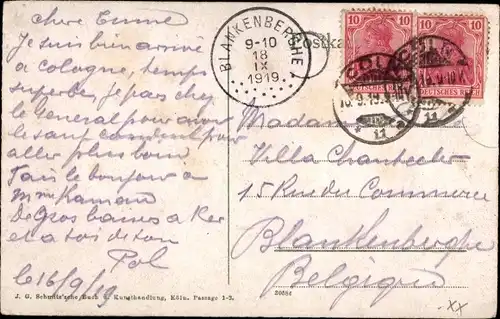 chère Emma
Je suis bien arrivé
a cologne, temps
superbe, je pars chez
le Général pour avoir
le sauf conduit pour
aller plus loin
fais le bonjour a
De gros baises a
et a toi de ton
Pol
le 16/9/19
J. G. Schmitz'sche Buch & Kunsthandlung, Köln, Passage 1-3.
Postka
BLANKENBERGHE
9-10
18
IX
1919
10 10
10 10
DEUTSCHES R
CÖLN
11
Madame
Villa Chantecler
15 Rue du Commerce
Blankenberghe
Belgique
XX